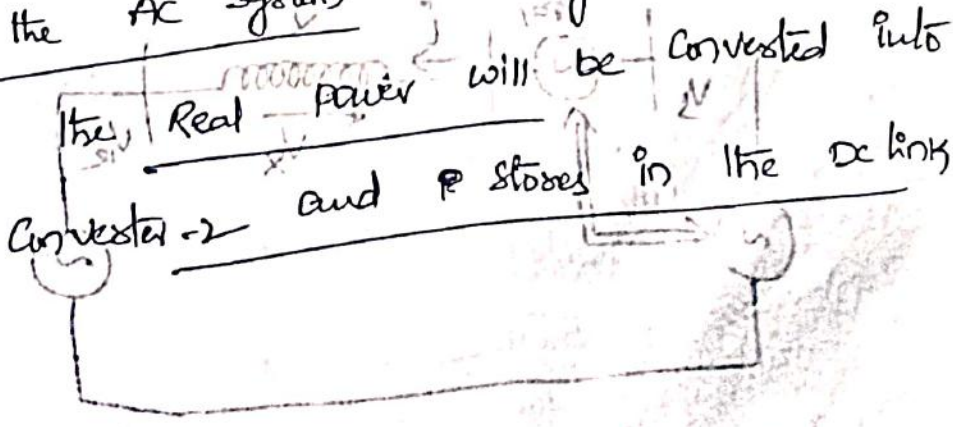 the AC system
the Real power will be Converted into
Converter-2 and stores in the DC link